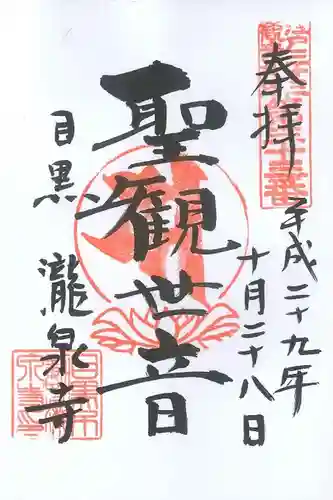 奉拝
平成二十九年
十月二十八日
聖観世音
目黒
瀧泉寺